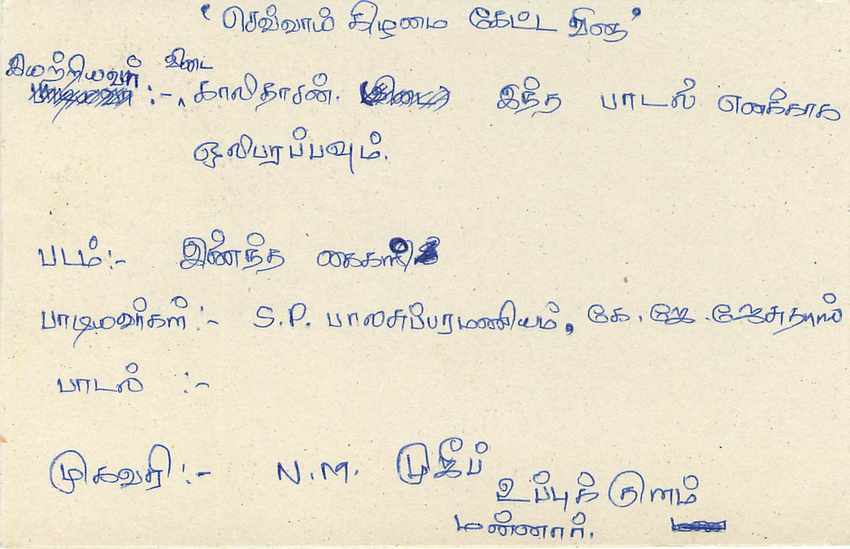 ‘செவ்வாய் கிழமை கேட்ட வினா’
இயற்றியவர் :- விடை காலிதாசன். இந்த பாடல் எனக்காக
ஒலிபரப்பவும்.
படம்:- இணைந்த கைகள்
பாடியவர்கள் :- S.P. பாலசுப்ரமணியம், கே.ஜே.ஜேசுதாஸ்
பாடல் :-
முகவரி:- N.M. முஜீப்
உப்புக்குளம்
மன்னார்.